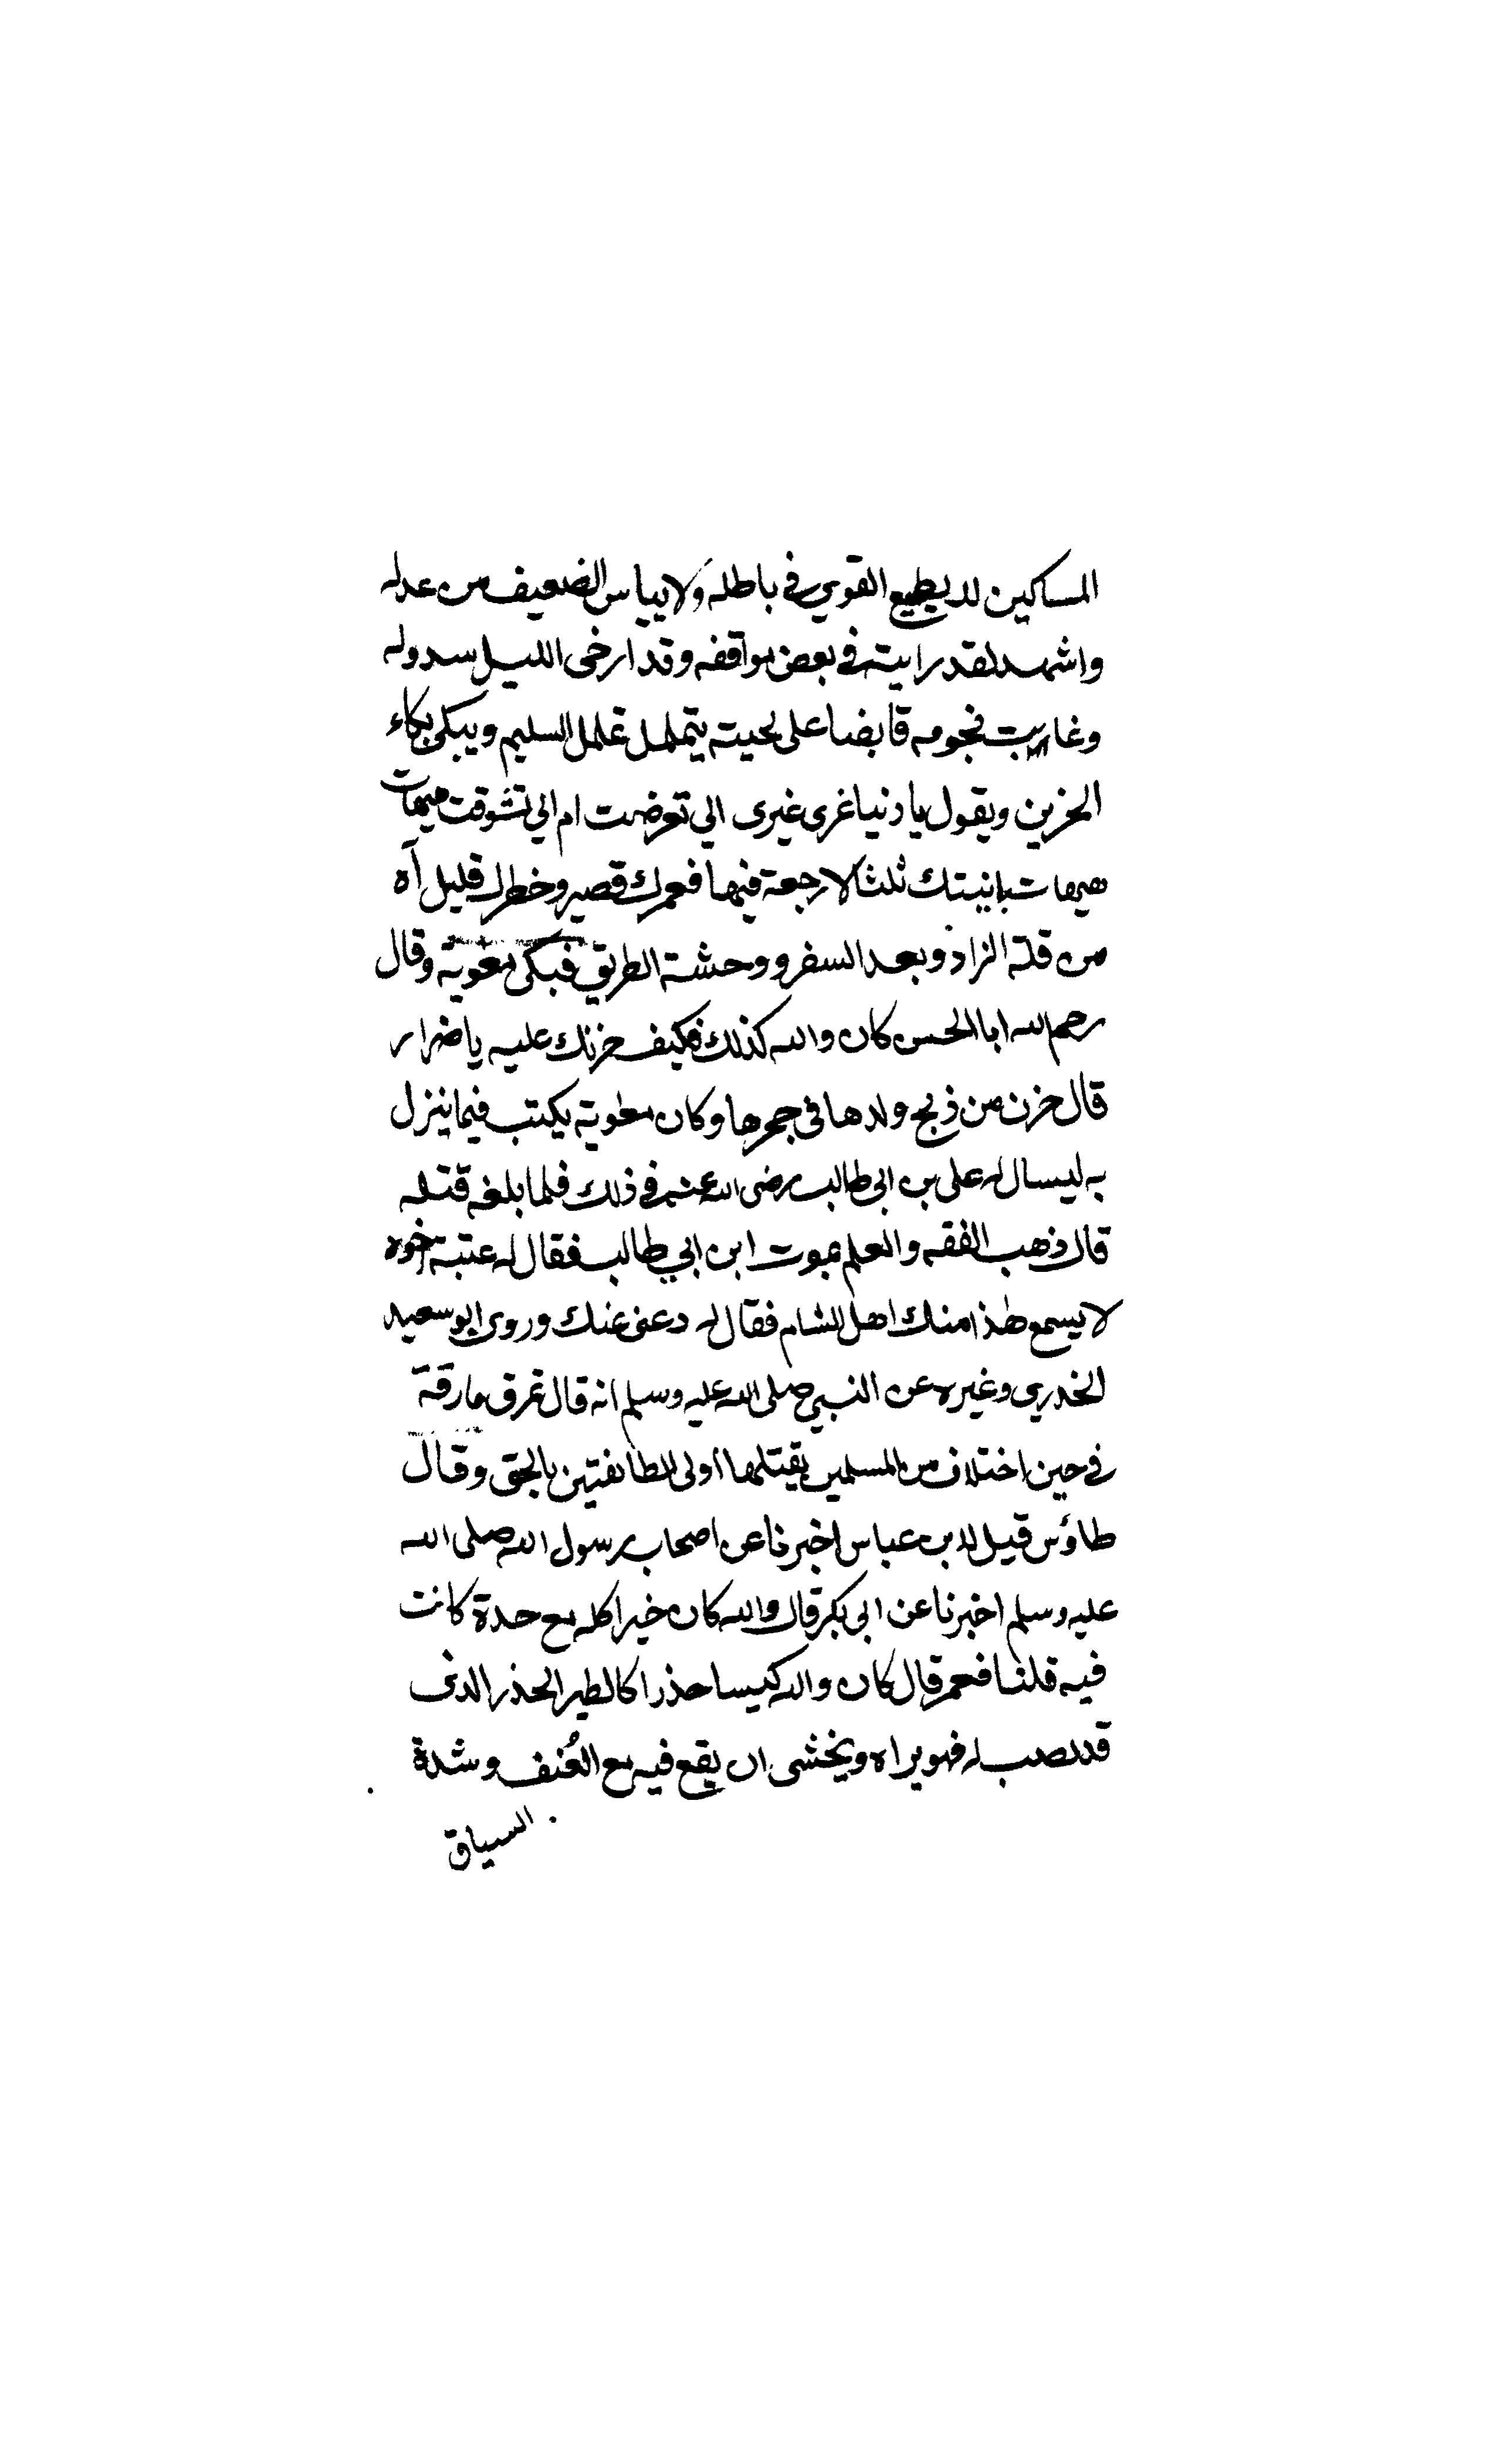 المساكين لا يطيع القوي في باطله ولا ييأس الضعيف من عدله
واشهد لقد رايته في بعض مواقفه وقد ارخى الليل سدوله
وغارت نجومه قابضا على لحيته يتململ تململ السليم ويبكى بكاء
الحزين ويقول يا دنيا غرى غيرى الي تعرضت ام الي تشوقت هيهات
هيهات باينتك ثلثا لا رجعة فيها فعمرك قصير وخطرك قليل آه
من قلة الزاد وبعد السفر ووحشة الطريق فبكى معوية وقال
رحم الله ابا الحسن كان والله كذلك فكيف حزنك عليه يا ضرار
قال حزن من ذبح ولدها في حجرها وكان معوية يكتب فيما ينزل
به ليسال له على بن ابي طالب رضى الله عنه في ذلك فلما بلغه قتله
قال ذهب الفقه والعلم بموت ابن ابي طالب فقال له عتبة اخوه
لا يسمع هذا منك اهل الشام فقال له دعنى عنك وروى ابو سعيد
الخدري وغيره عن النبي صلى الله عليه وسلم انه قال تمرق مارقة
في حين اختلاف من المسلمين يقتلها اولى الطائفتين بالحق وقال
طاؤس قيل لابن عباس اخبرنا عن اصحاب رسول الله صلى الله
عليه وسلم اخبرنا عن ابي بكر قال والله كان خيرا كله مع حدة كانت
فيه قلنا فعمر قال كان والله كيسا حذرا كالطير الحذر الذى
قد نصب له فهو يراه ويخشى ان يقع فيه مع العُنف وشدة
السياق